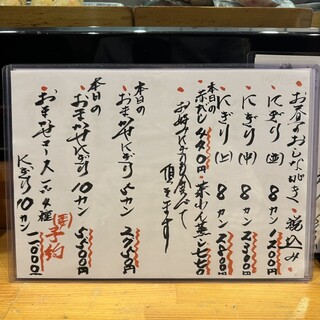 お昼のおしながき 税込み
にぎり (並) 8カン 1,200円
にぎり (中) 8カン 2,200円
にぎり (上) 8カン 2,800円
本日の赤だし 440円 茶わん蒸し 770
お好みにぎりも食べて頂きます
本日のおまかせにぎり 5カン 2,750円
本日のおまかせにぎり 10カン 5,500円
おまかせコース 一品4種
にぎり10カン 11,000円
要予約